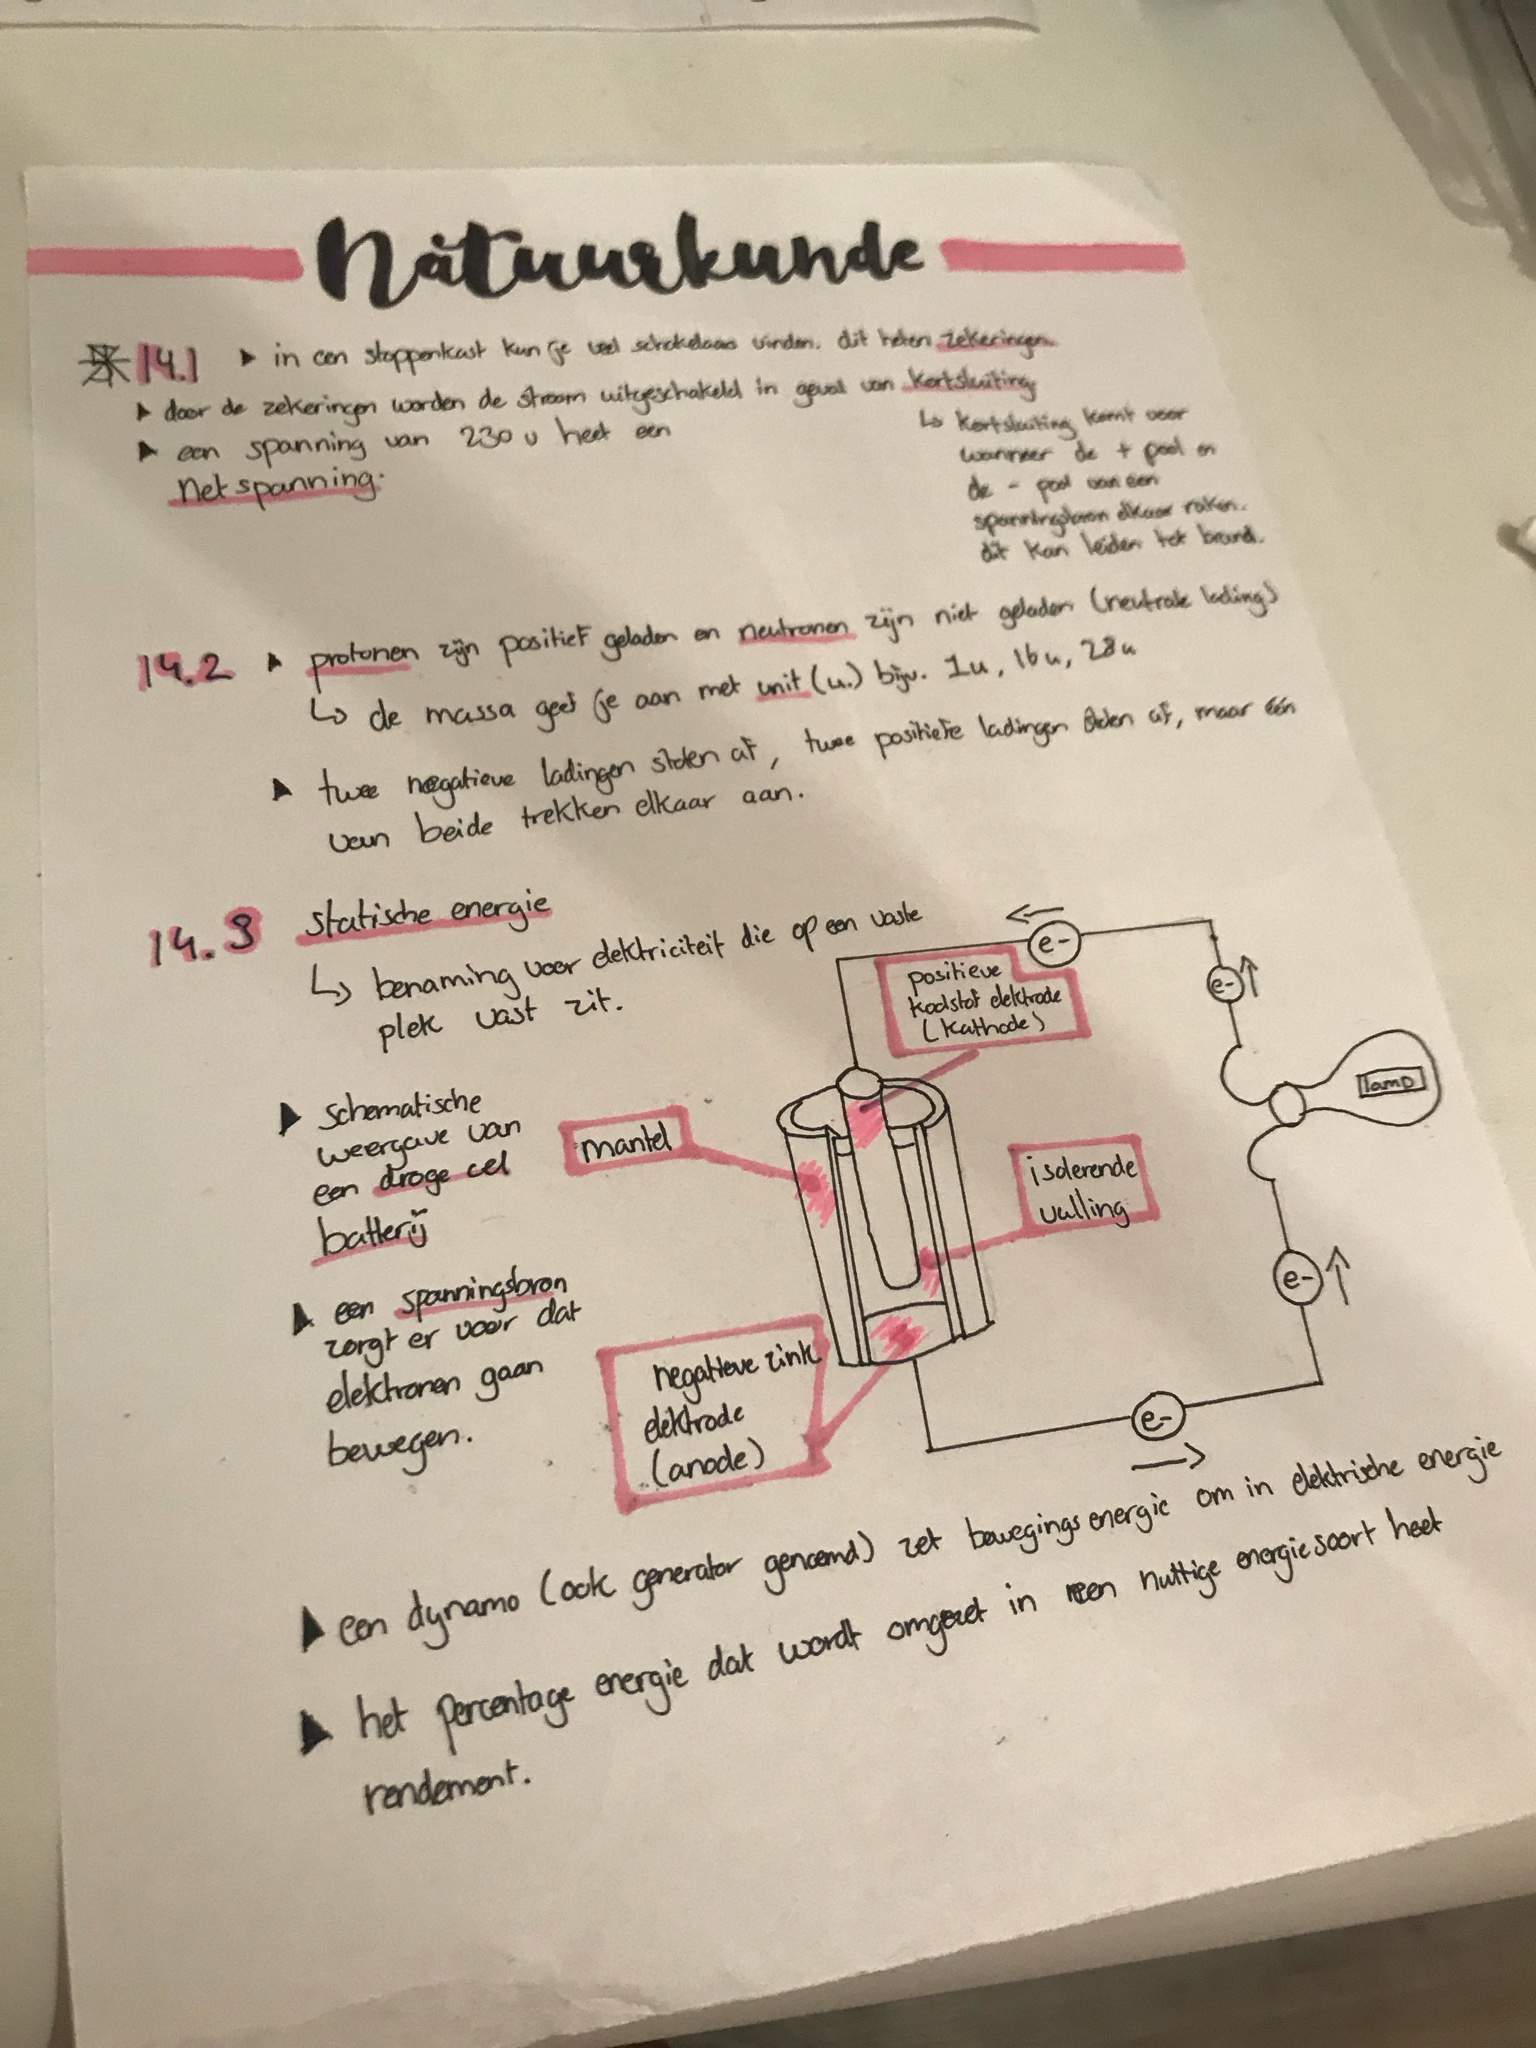 Natuurkunde
14.1 ▶ in een stoppenkast kun je veel schakelaars vinden. dit heten zekeringen.
▶ door de zekeringen worden de stroom uitgeschakeld in geval van kortsluiting
↳ kortsluiting komt voor
wanneer de + pool en
de - pool van een
spanningsbron elkaar raken.
dit kan leiden tot brand.
▶ een spanning van 230 v heet een
netspanning.
14.2 ▶ protonen zijn positief geladen en neutronen zijn niet geladen (neutrale lading)
↳ de massa geef je aan met unit (u.) bijv. 1u, 16u, 28u
▶ twee negatieve ladingen stoten af, twee positieve ladingen stoten af, maar één
van beide trekken elkaar aan.
14.3 statische energie
↳ benaming voor elektriciteit die op een vaste
plek vast zit.
▶ schematische
weergave van
een droge cel
batterij
▶ een spanningsbron
zorgt er voor dat
elektronen gaan
bewegen.
mantel
positieve
koolstof elektrode
(kathode)
isolerende
vulling
negatieve zink
elektrode
(anode)
e-
e-
lamp
e-
e-
▶ een dynamo (ook generator genoemd) zet bewegingsenergie om in elektrische energie
▶ het percentage energie dat wordt omgezet in een nuttige energiesoort heet
rendement.